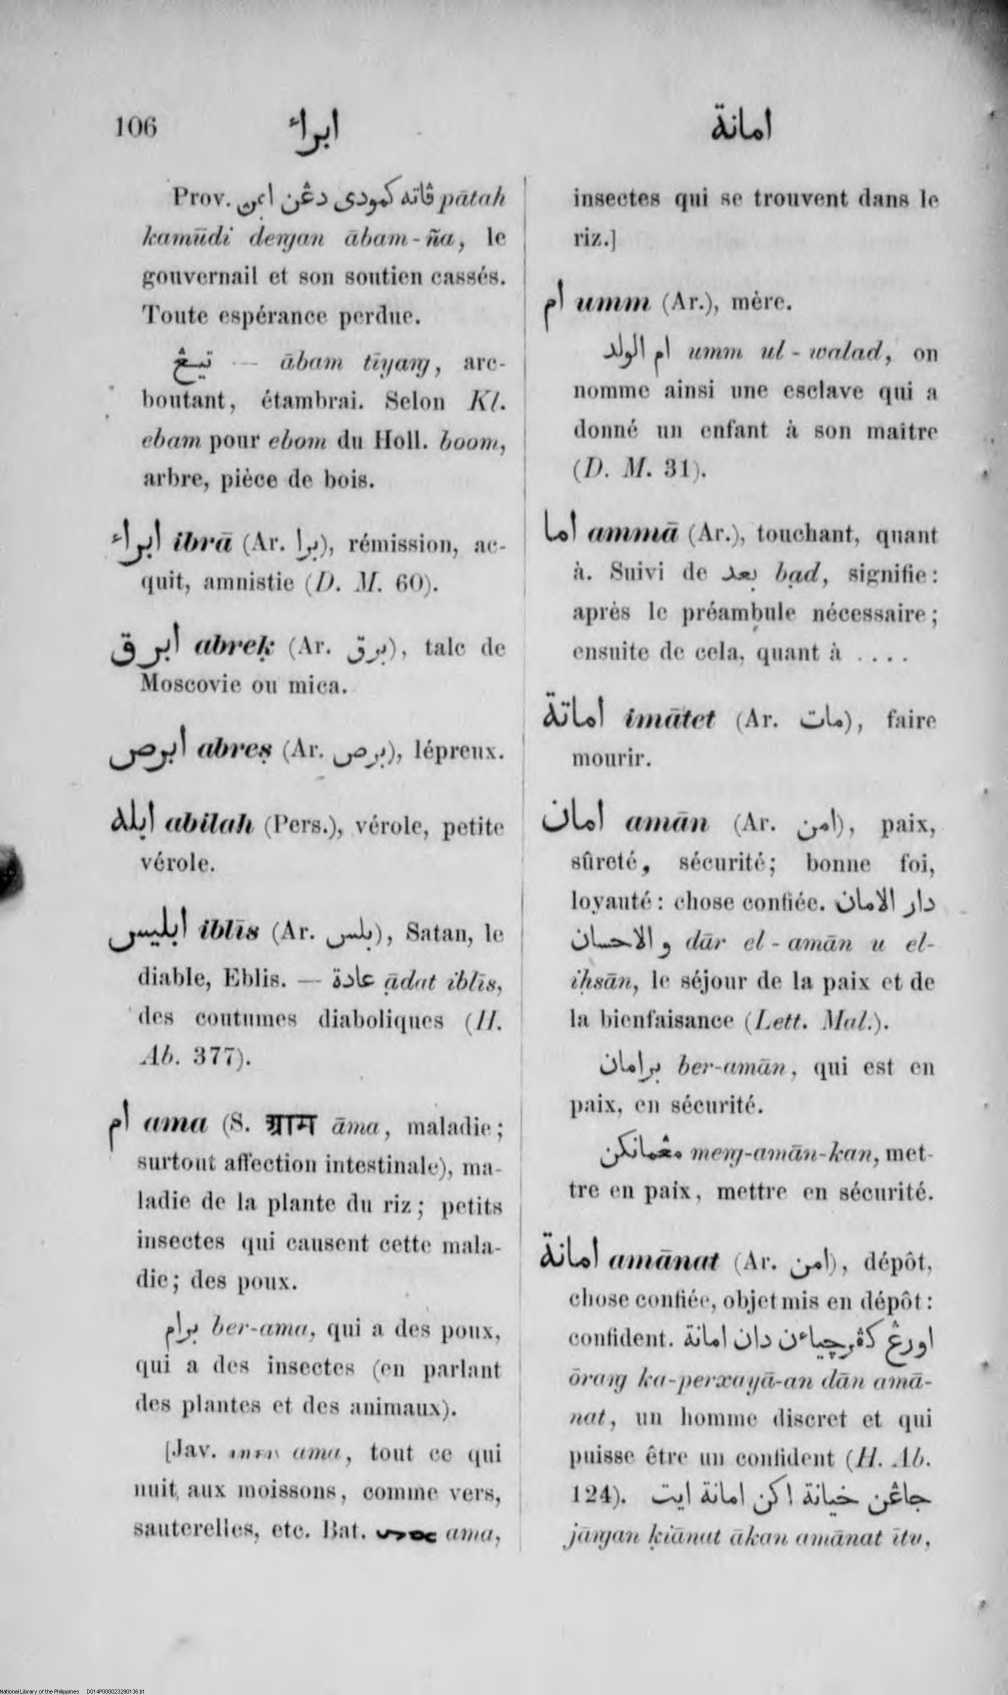 106
ابراء
امانة
Prov. ڤاته كمودى دڠن ابمن pātah
kamūdi deṅgan ābam-ña, le
gouvernail et son soutien cassés.
Toute espérance perdue.
تيڠ — ābam tīyaṅg, arc-
boutant, étambrai. Selon Kl.
ebam pour ebom du Holl. boom,
arbre, pièce de bois.
ابراء ibrā (Ar. برا), rémission, ac-
quit, amnistie (D. M. 60).
ابرق abreḳ (Ar. برق), talc de
Moscovie ou mica.
ابرص abreṣ (Ar. برص), lépreux.
ابله abilah (Pers.), vérole, petite
vérole.
ابليس iblīs (Ar. بلس), Satan, le
diable, Eblis. — عادة ạ̄dat iblīs,
des coutumes diaboliques (H.
Ab. 377).
ام ama (S. आम āma, maladie;
surtout affection intestinale), ma-
ladie de la plante du riz; petits
insectes qui causent cette mala-
die; des poux.
برام ber-ama, qui a des poux,
qui a des insectes (en parlant
des plantes et des animaux).
[Jav. ama, tout ce qui
nuit aux moissons, comme vers,
sauterelles, etc. Bat. ama,
insectes qui se trouvent dans le
riz.]
ام umm (Ar.), mère.
ام الولد umm ul-walad, on
nomme ainsi une esclave qui a
donné un enfant à son maître
(D. M. 31).
اما ammā (Ar.), touchant, quant
à. Suivi de بعد bạd, signifie:
après le préambule nécessaire;
ensuite de cela, quant à ....
اماتة imātet (Ar. مات), faire
mourir.
امان amān (Ar. امن), paix,
sûreté, sécurité; bonne foi,
loyauté: chose confiée. دار الامان
و الاحسان dār el-amān u el-
iḥsān, le séjour de la paix et de
la bienfaisance (Lett. Mal.).
برامان ber-amān, qui est en
paix, en sécurité.
مڠمانكن meṅg-amān-kan, met-
tre en paix, mettre en sécurité.
امانة amānat (Ar. امن), dépôt,
chose confiée, objet mis en dépôt:
confident. اورڠ كڤرچياءن دان امانة
ōraṅg ka-perxayā-an dān amā-
nat, un homme discret et qui
puisse être un confident (H. Ab.
124). جاڠن خيانة اكن امانة ايت
jāṅgan ḳiānat ākan amānat ītu,